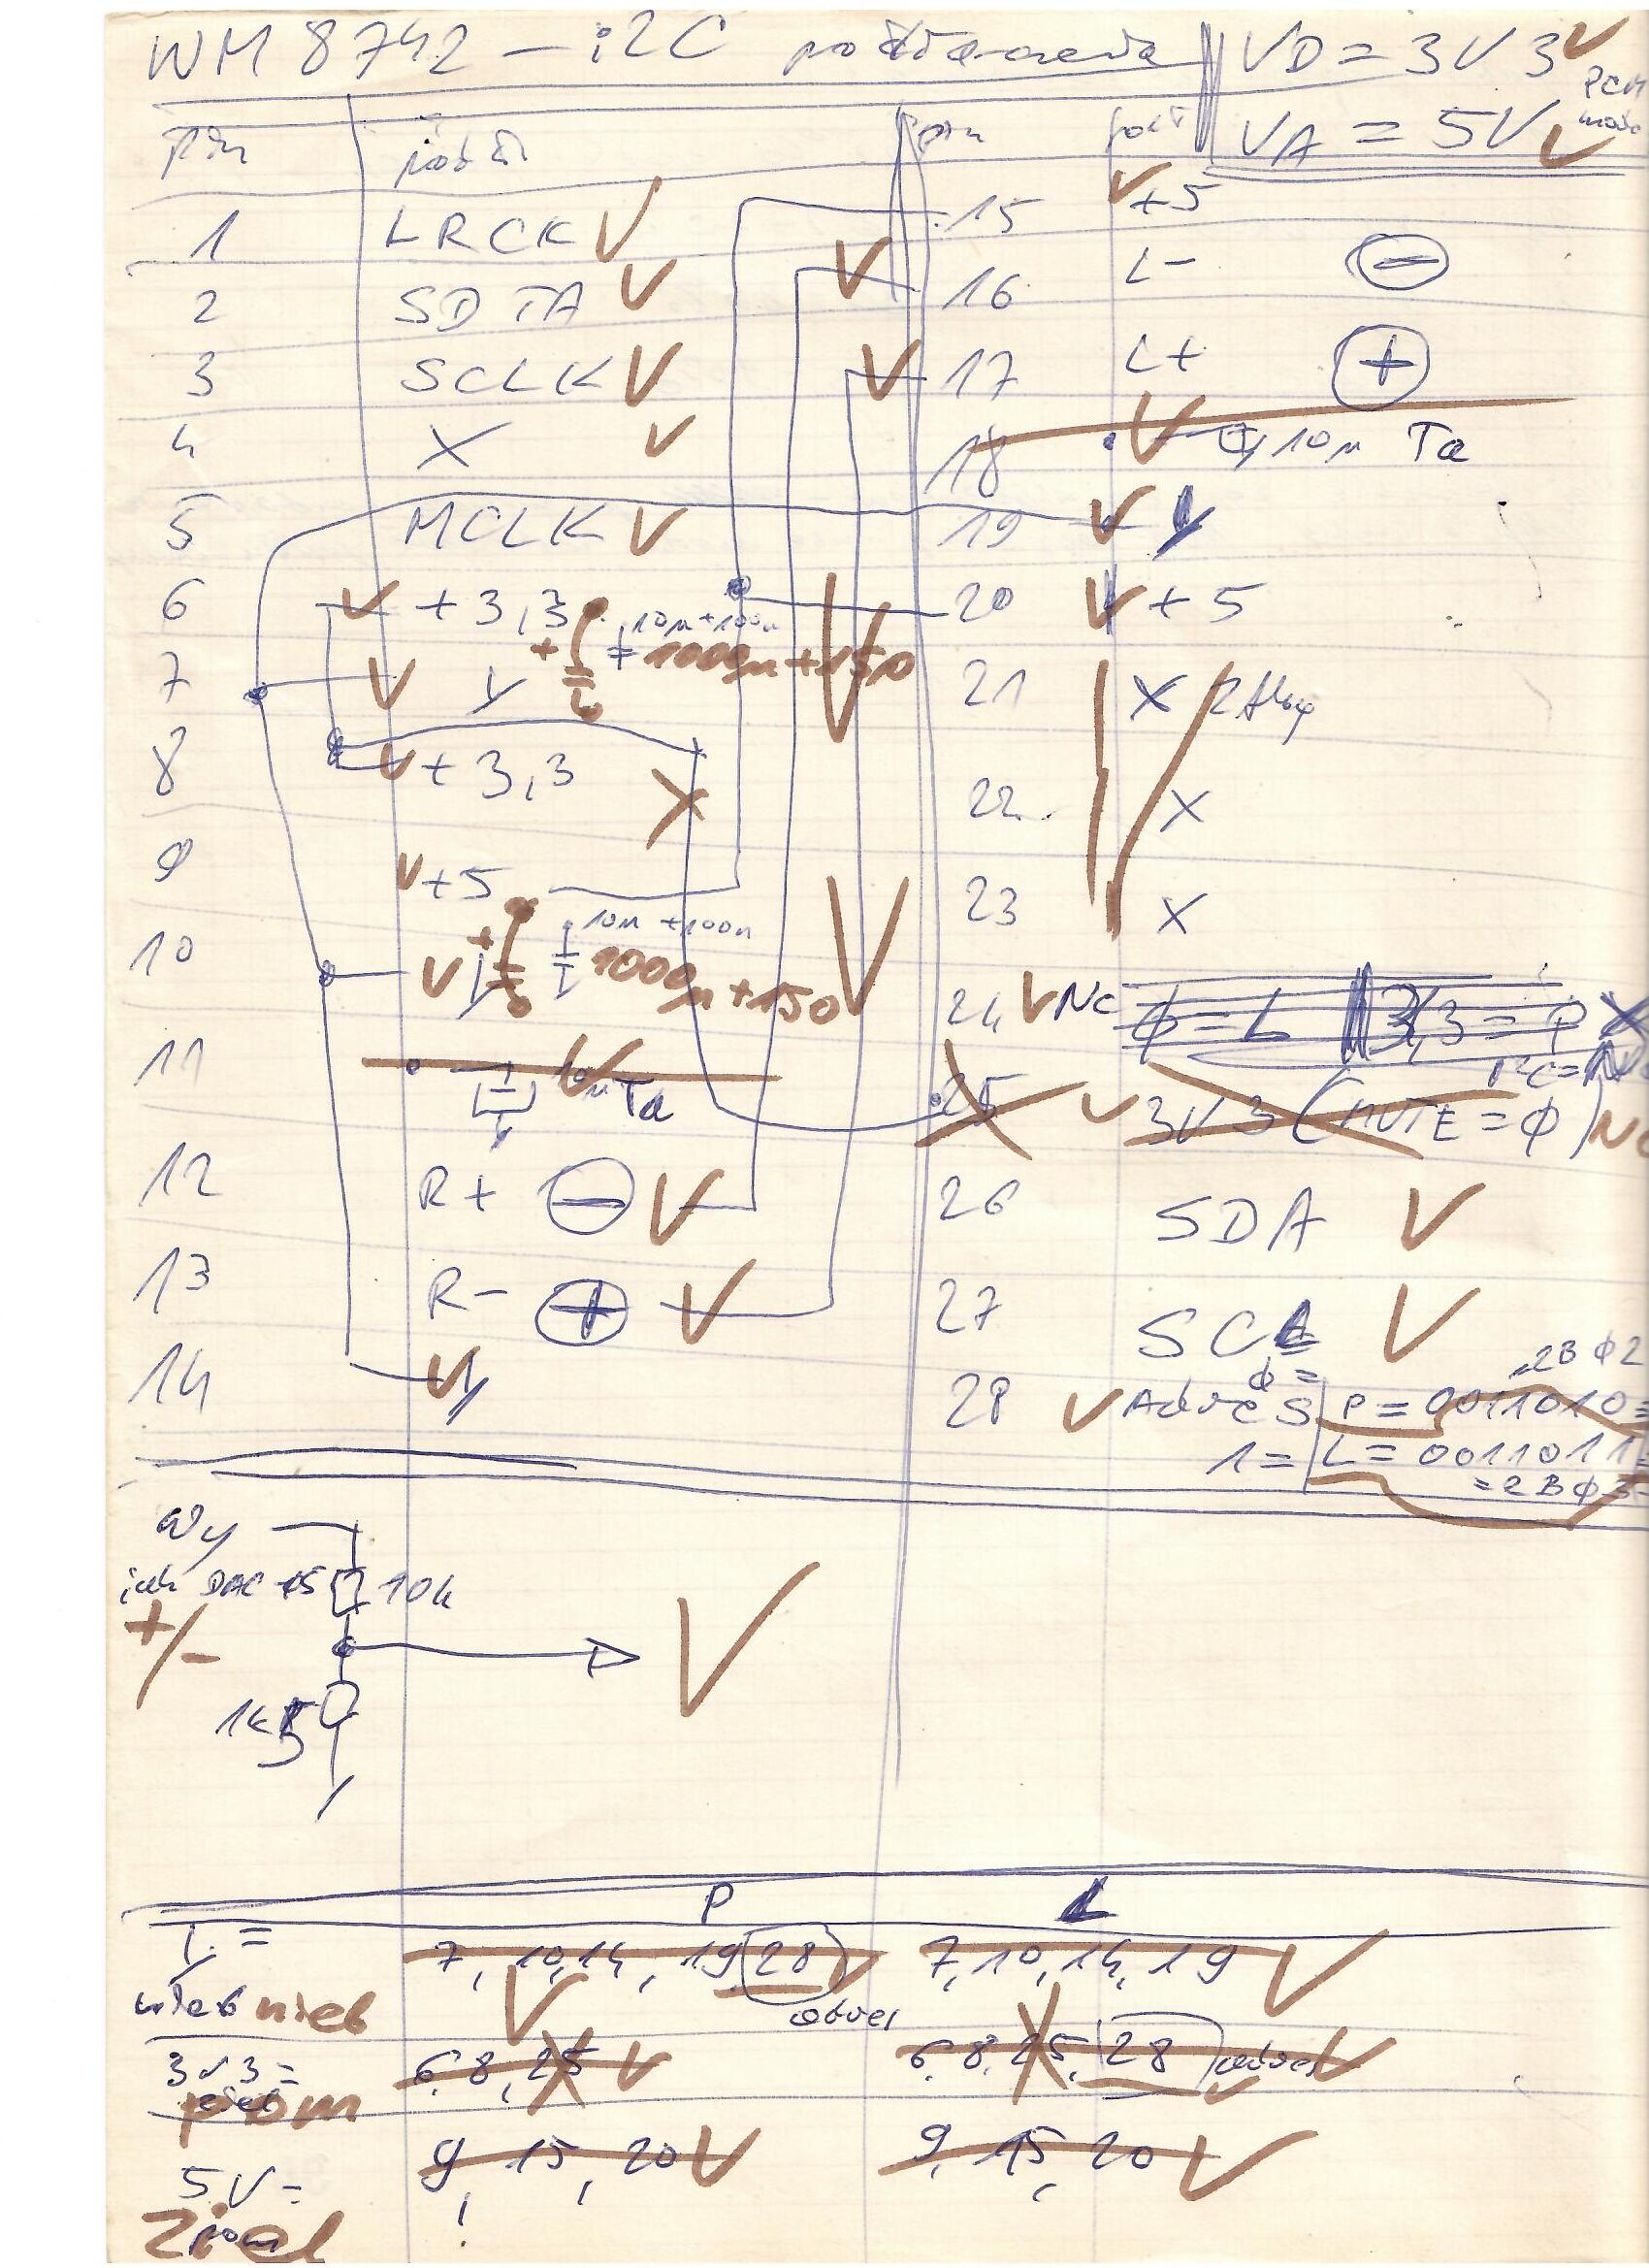 WM 8742 – i2C
VD = 3V3
PCM
VA = 5V
pin
pin
1 LRCK
2 SDTA
3 SCLK
4 X
5 MCLK
6 +3,3
10µ+100n
1000µ+150
7
8 +3,3
9 +5
10
10µ +100n
1000µ+150
11 10µ Ta
12 R+ −
13 R- +
14
15 +5
16 L- −
17 L+ +
18 10µ Ta
19
20 +5
21 X
22 X
23 X
24 NC φ=L 3,3=P X
25 3V3 (MUTE = φ)
26 SDA
27 SCL
φ = 2Bφ2
28 Adres P = 0011010 =
1 = L = 0011011 =
= 2Bφ3
Wy
DAC 10k
+/-
1k5
P L
7, 10, 14, 19 28 7, 10, 14, 19
nieb nieb
adres
3v3 = 6, 8, 25 6, 8, 25, 28 adres
pom
5V = 9, 15, 20 9, 15, 20
Ziel
!